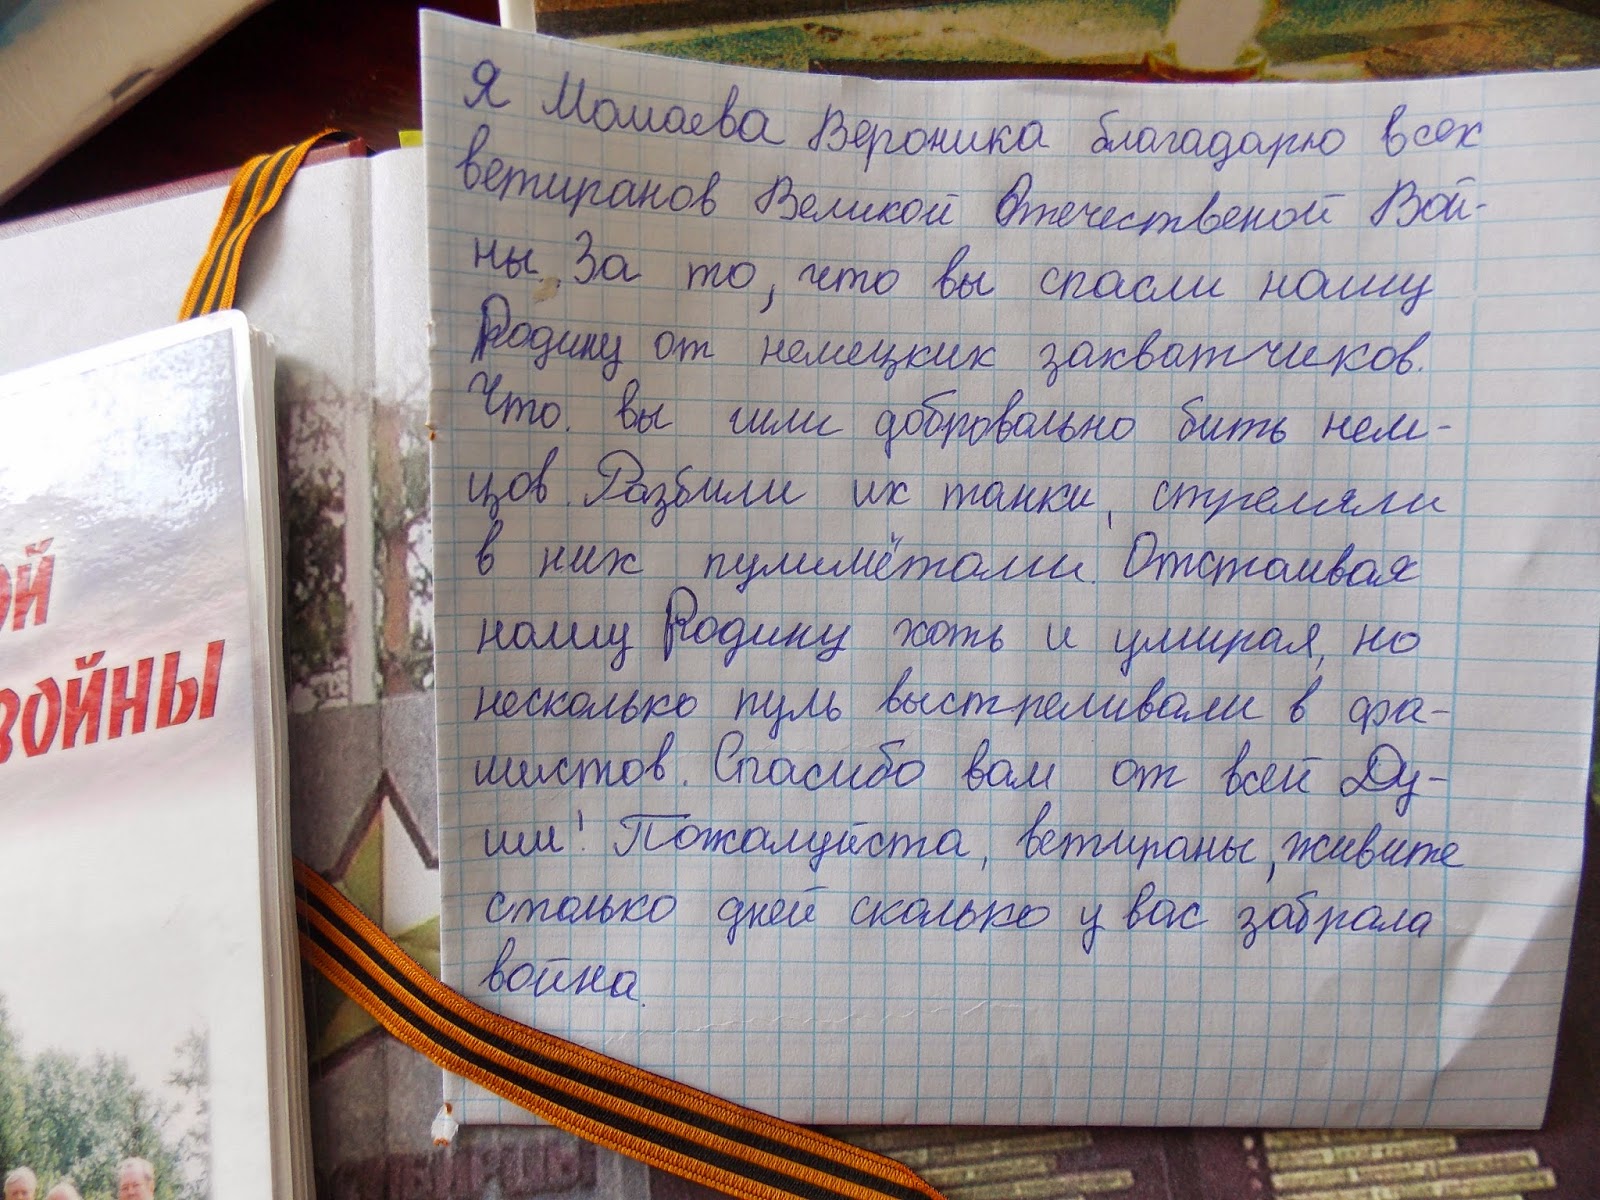 Я Мамаева Вероника благадарю всех
ветиранов Великой Отечественой Вой-
ны. За то, что вы спасли нашу
Родину от немецких захватчиков.
Что вы шли добровально бить нем-
цов. Разбили их танки, стреляли
в них пулимётами. Отстаивая
нашу Родину хоть и умирая, но
несколько пуль выстреливали в фа-
шистов. Спасибо вам от всей Ду-
ши! Пожалуйста, ветираны, живите
столько дней сколько у вас забрала
война.
ОЙ
ВОЙНЫ